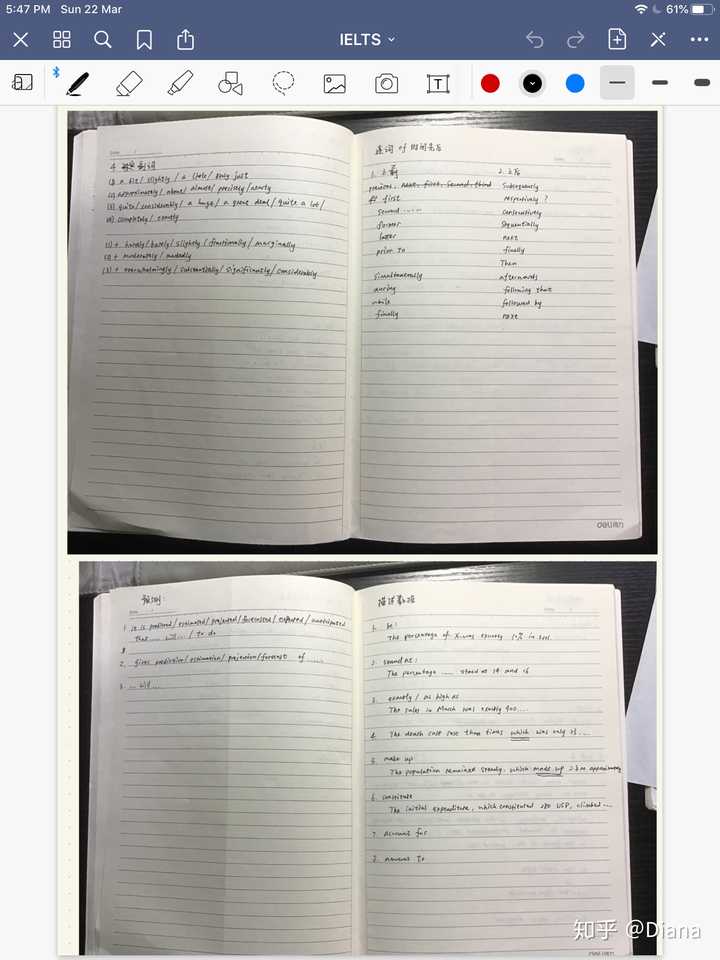 5:47 PM Sun 22 Mar
61%
IELTS
T
Date
4 副词
(1) a bit/ slightly / a little/ only just
(2) approximately/ about/ almost/ precisely/ nearly
(3) quite/ considerably/ a huge/ a great deal/ quite a lot/
(4) completely/ exactly
(1) + hardly/ barely/ slightly / fractionally/ marginally
(2) + moderately/ markedly
(3) + overwhelmingly / substantially/ significantly/ considerably
连词 of 时间先后
Date
1. 之前
previous. next. first. second. third
first
second ......
former
latter
prior to
simultaneously
during
while
finally
2. 之后
Subsequently
respectively ?
consecutively
Sequentially
next
finally
Then
afterwards
following that
followed by
next
deli得力
预测:
Date
1. it is predicted/ estimated/ projected/ forecasted/ expected/ anticipated
that ...... will ...... / to do
2. gives prediction/ estimation/ projection/forecast of ......
3. ... will ...
描述数据
Date
1. be:
The percentage of X was exactly 10% in 2001.
2. stand at:
The percentage ...... stand at 14 and 16
3. exactly / as high as
The sales in March was exactly 400....
4. The death rose three times which was only 25....
5. make up
The population remained steady, which made up 2.3 m approximately
6. constitute
The initial expenditure, which constituted 280 USD, climbed ...
7. account for
8. amount to
deli得力
知乎 @Diana